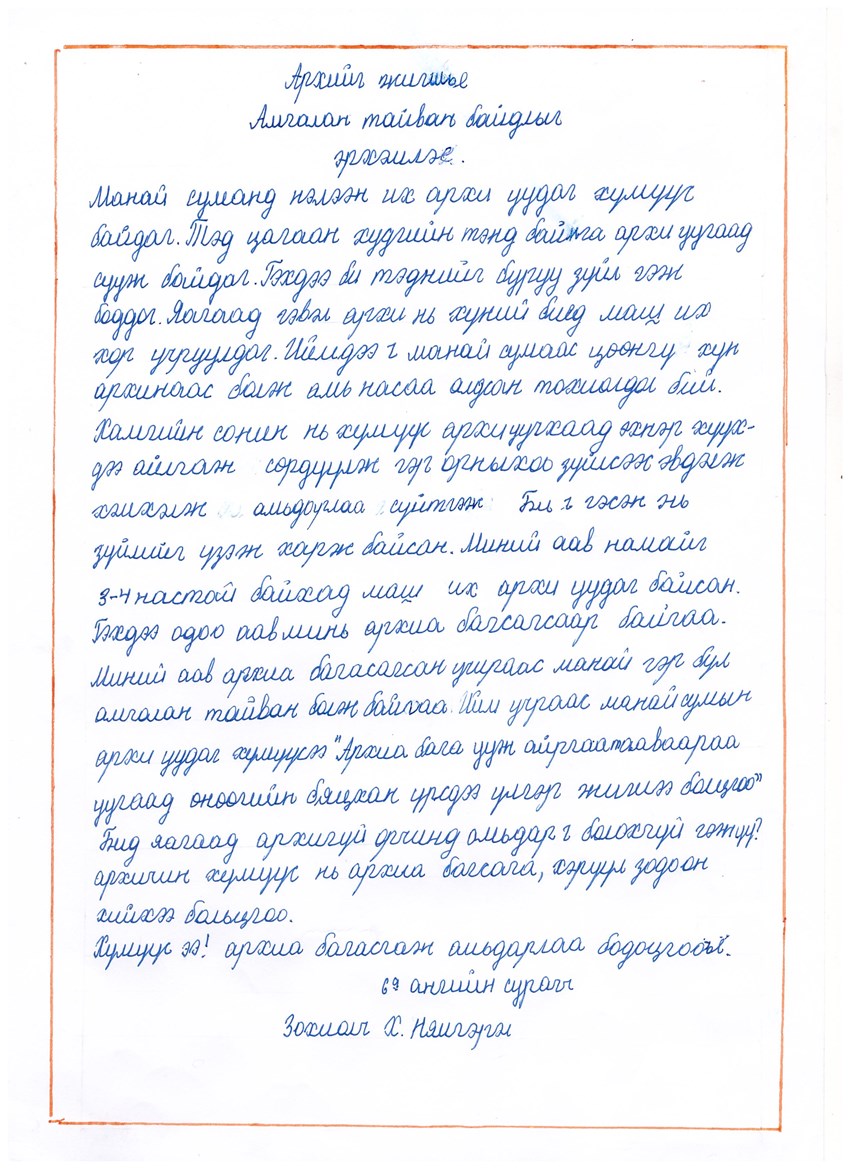 Архийг жигшье
Амгалан тайван байдлыг
эрхэмлэе.
Манай суманд нэлээн их архи уудаг хүмүүс
байдаг. Тэд цагаан худгийн тэнд байнга архи уугаад
сууж байдаг. Гэхдээ би тэднийг буруу зүйл гэж
боддог. Яагаад гэвэл архи нь хүний биед маш их
хор учруулдаг. Иймдээ ч манай сумаас цөөнгүй хүн
архинаас болж амь насаа алдсан тохиолдол бий.
Хамгийн сонин нь хүмүүс архи уучхаад эхнэр хүүх-
дээ айлгаж сөрдүүлж гэр орныхоо зүйлсээ эвдэлж
хэмхэлж амьдарлаа сүйтгэж Би ч гэсэн энэ
зүймийг үзэж харж байсан. Миний аав намайг
3-4 настай байхад маш их архи уудаг байсан.
Гэхдээ одоо аав минь архиа багсагсаар байгаа.
Миний аав архиа багасагсан учираас манай гэр бүл
амгалан тайван болж байгаа. Ийм учраас манай сумын
архи уудаг хүмүүсээ "Архиа бага ууж айргаа тааваараа
уугаад өнөөгийн бяцхан үрсдээ үлгэр жишээ болцгоо"
Бид яагаад архигүй орчинд амьдарч болохгүй гэжүү?
архичин хүмүүс нь архиа багсага, хэрүүл зодоон
хийхээ больцгоо.
Хүмүүс ээ! архиа багасгаж амьдарлаа бодоцгооё.
6э ангийн сурагч
Зохиогч Х. Нямгэрэл